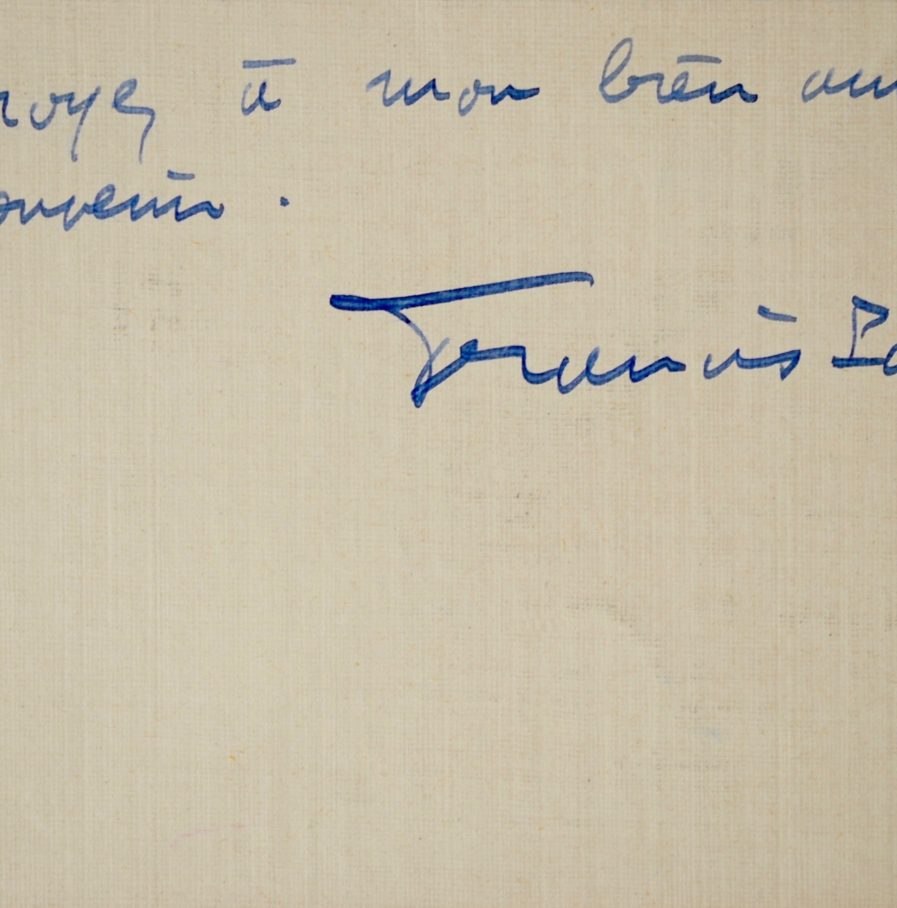 royez à mon bien am
ouvenir.
Francis Po